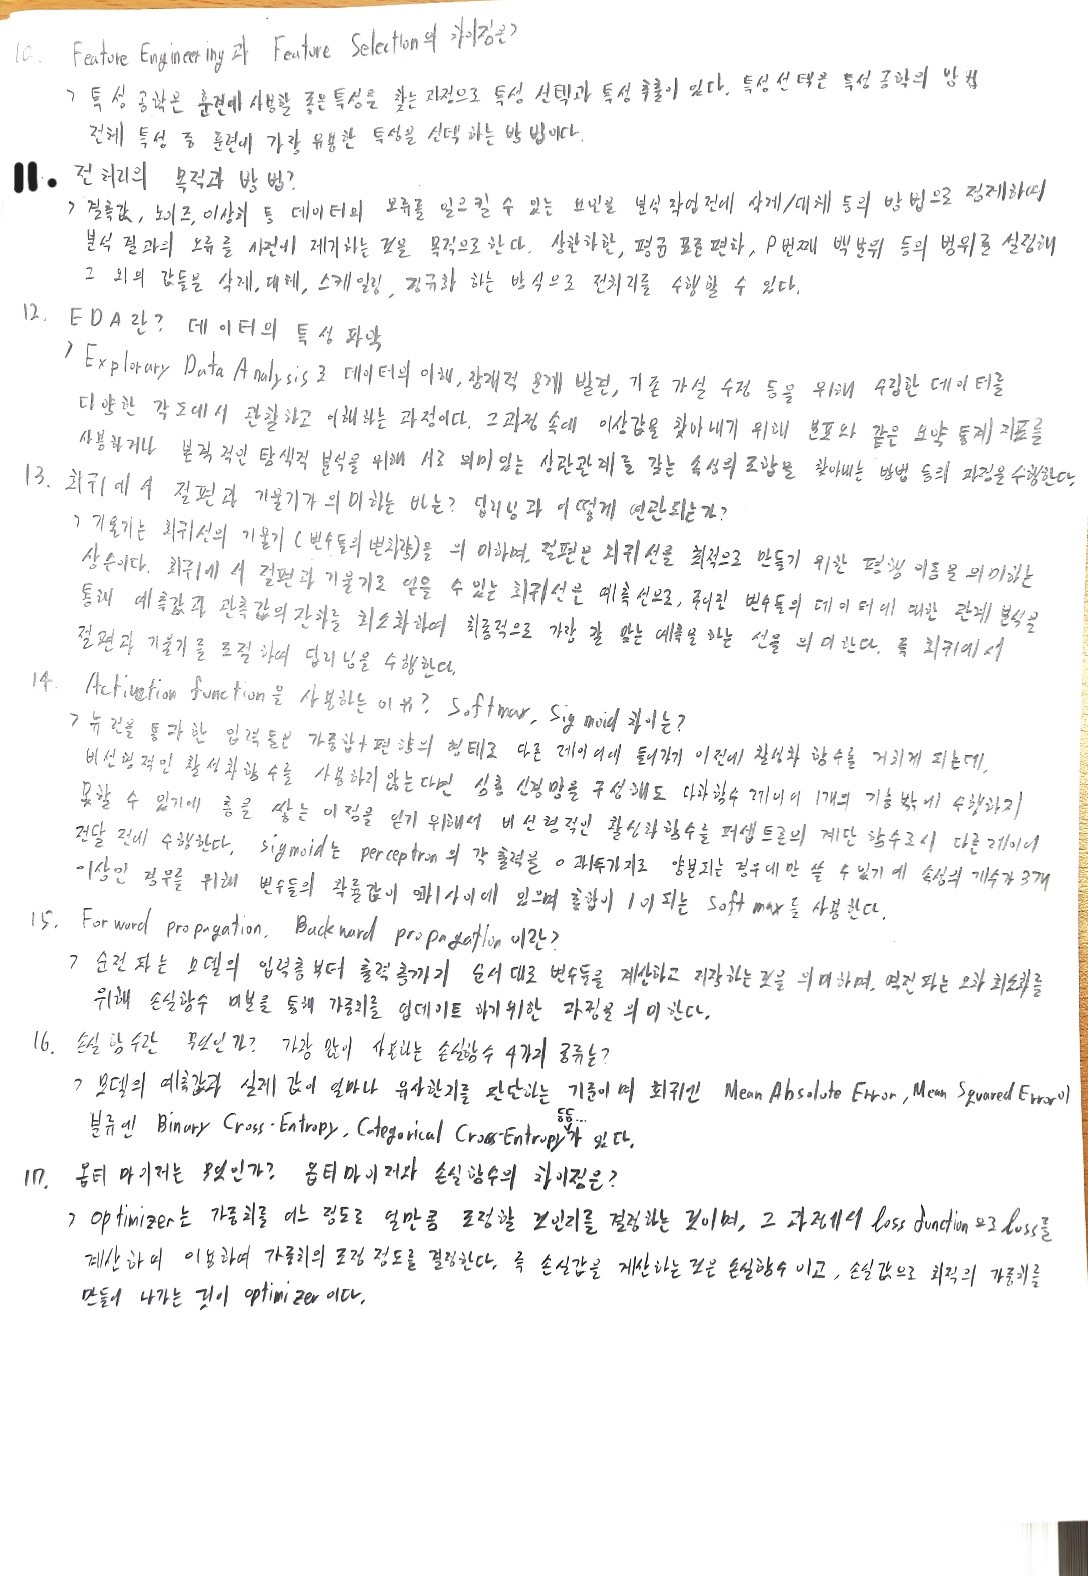 10. Feature Engineering과 Feature Selection의 차이점은?
> 특성 공학은 훈련에 사용할 좋은 특성을 찾는 과정으로 특성 선택과 특성 추출이 있다. 특성 선택은 특성 공학의 방법
전체 특성 중 훈련에 가장 유용한 특성을 선택하는 방법이다.
11. 전처리의 목적과 방법?
> 결측값, 노이즈, 이상치 등 데이터의 오류를 일으킬 수 있는 요인을 분석 작업 전에 삭제/대체 등의 방법으로 정제하여
분석 결과의 오류를 사전에 제거하는 것을 목적으로 한다. 상한하한, 평균 표준편차, P번째 백분위 등의 범위를 설정해
그 외의 값들을 삭제, 대체, 스케일링, 정규화 하는 방식으로 전처리를 수행할 수 있다.
12. EDA란? 데이터의 특성 파악
> Explorary Data Analysis로 데이터의 이해, 잠재적 문제 발견, 기존 가설 수정 등을 위해 수집한 데이터를
다양한 각도에서 관찰하고 이해하는 과정이다. 그 과정 속에 이상값을 찾아내기 위해 분포와 같은 요약 통계 지표를
사용하거나 본격적인 탐색적 분석을 위해 서로 의미있는 상관관계를 갖는 속성의 조합을 찾아내는 방법 등의 과정을 수행한다.
13. 회귀에서 절편과 기울기가 의미하는 바는? 딥러닝과 어떻게 연관되는가?
> 기울기는 회귀선의 기울기(변수들의 변화량)을 의미하며, 절편은 회귀선을 최적으로 만들기 위한 평행 이동을 의미하는
상수이다. 회귀에서 절편과 기울기로 얻을 수 있는 회귀선은 예측선으로, 주어진 변수들의 데이터에 대한 관계 분석을
통해 예측값과 관측값의 잔차를 최소화하여 최종적으로 가장 잘 맞는 예측을 하는 선을 의미한다. 즉 회귀에서
절편과 기울기를 조절하여 딥러닝을 수행한다.
14. Activation function을 사용하는 이유? Softmax, Sigmoid 차이는?
> 뉴런을 통과한 입력들은 가중합+편향의 형태로 다른 레이어에 들어가기 이전에 활성화 함수를 거치게 되는데,
비선형적인 활성화함수를 사용하지 않는다면 심층 신경망을 구성해도 다항함수 레이어 1개의 기능 밖에 수행하지
못할 수 있기에 층을 쌓는 이점을 얻기 위해서 비선형적인 활성화함수를 퍼셉트론의 계단 함수로서 다른 레이어
전달 전에 수행한다. sigmoid는 perceptron의 각 출력을 0과 1 두가지로 양분되는 경우에만 쓸 수 있기에 속성의 개수가 3개
이상인 경우를 위해 변수들의 확률값이 0과 1 사이에 있으며 총합이 1이 되는 Softmax를 사용한다.
15. Forword propagation, Backward propagation이란?
> 순전파는 모델의 입력층부터 출력층까지 순서대로 변수들을 계산하고 저장하는 것을 의미하며, 역전파는 오차 최소화를
위해 손실함수 미분을 통해 가중치를 업데이트 하기 위한 과정을 의미한다.
16. 손실함수란 무엇인가? 가장 많이 사용하는 손실함수 4가지 종류는?
> 모델의 예측값과 실제 값이 얼마나 유사한지를 판단하는 기준이며 회귀엔 Mean Absolute Error, Mean Squared Error이
분류엔 Binary Cross-Entropy, Categorical Cross-Entropy 등등...가 있다.
17. 옵티마이저는 무엇인가? 옵티마이저와 손실함수의 차이점은?
> optimizer는 가중치를 어느 정도로 얼만큼 조정할 것인지를 결정하는 것이며, 그 과정에서 loss function으로 loss를
계산하여 이용하여 가중치의 조정 정도를 결정한다. 즉 손실값을 계산하는 것은 손실함수이고, 손실값으로 최적의 가중치를
만들어 나가는 것이 optimizer이다.